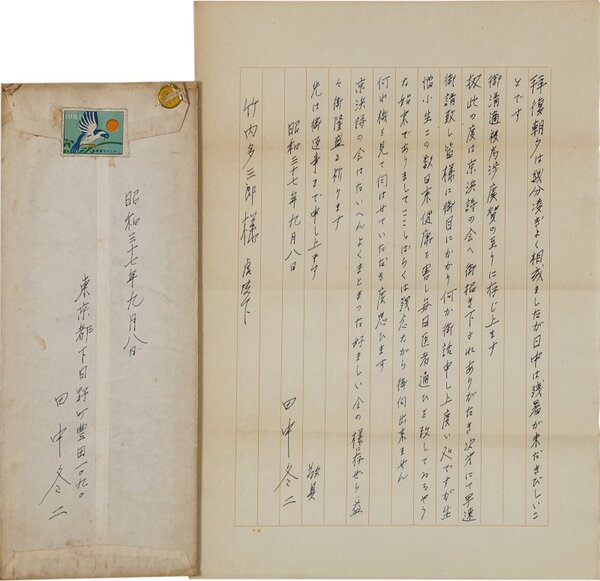 拝復朝夕は幾分凌ぎよく相成ましたが日中は残暑が未だきびしいこ
とです
御清適被為渉慶賀の至りに存じ上ます
扨此の度は京浜詩の会へ御招き下されありがたき次第にて早速
御請致し皆様に御目にかかり何か御話申し上度い処ですが生
憎小生この数日来健康を害し毎日医者通ひを致してゐるやう
な始末でありましてここしばらくは残念ながら御伺出来ません
何れ機を見て伺はせていたゞき度思ひます
京浜詩の会はたいへんよくまとまった好ましい会の様存せられ益
々御隆盛を祈ります
先は御返事まで申し上ます
敬具
昭和三十七年九月八日
田中冬二
竹内多三郎様
昭和三十七年九月八日
東京都下日野町豊田一〇九〇
田中冬二